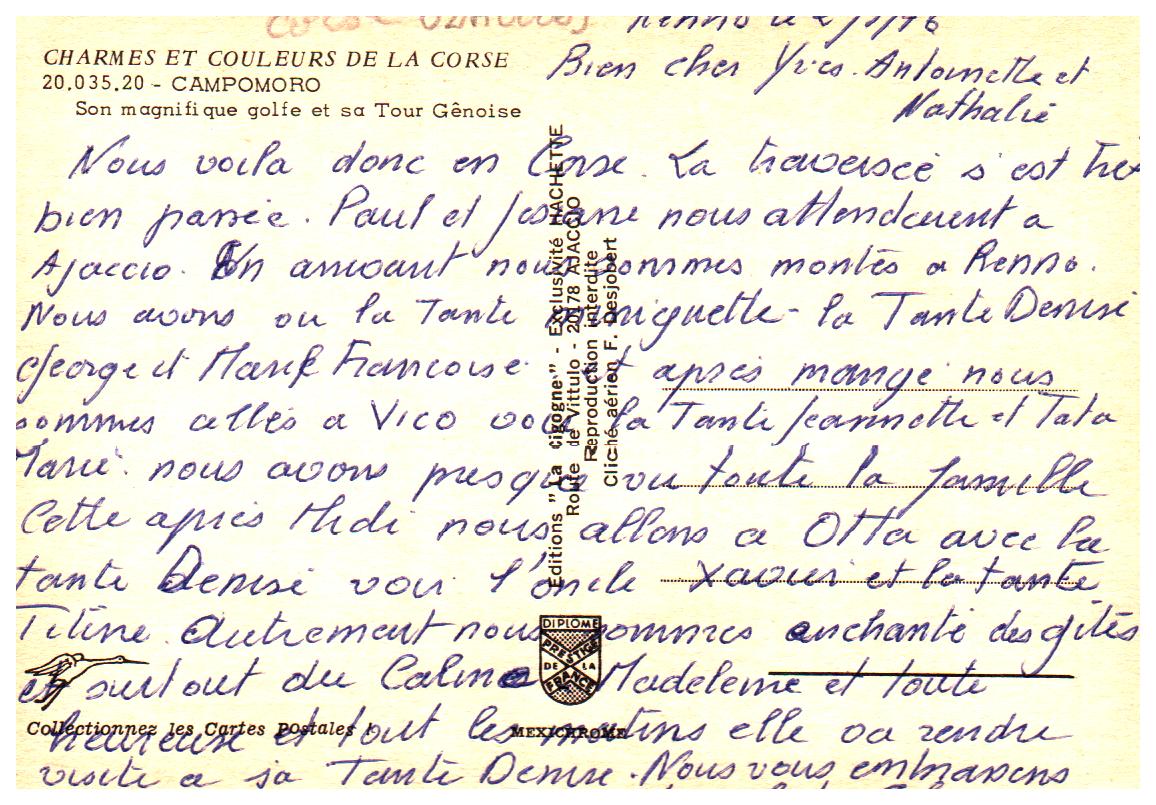 Renno le 2/7/76
CHARMES ET COULEURS DE LA CORSE
20.035.20 - CAMPOMORO
Son magnifique golfe et sa Tour Gênoise
Bien cher Yves. Antoinette et
Nathalie
Nous voila donc en Corse. La traversée s'est très
bien passée. Paul et Josiane nous attendaient a
Ajaccio. En arrivant nous sommes montés a Renno.
Nous avons vu la Tante Miniguette - la Tante Denise
George et Marie Francoise. et après mangé nous
sommes allés a Vico voir la Tante Jeannette et Tata
Marie. nous avons presque vu toute la famille
Cette après Midi nous allons a Otta avec la
tante Denise voir l'oncle Xavier et la tante
Titine. Autrement nous sommes enchanté des gîtes
et surtout du Calme Madeleine et toute
heureuse et tout les matins elle va rendre
visite a sa Tante Denise. Nous vous embrassons
Editions "La Cigogne" - Exclusivité HACHETTE
Route de Vittulo - 20178 AJACCIO
Reproduction interdite
Cliché aérien F. Desjobert
DIPLOME
PRESTIGE
DE LA
FRANCE
Collectionnez les Cartes Postales !
MEXICHROME